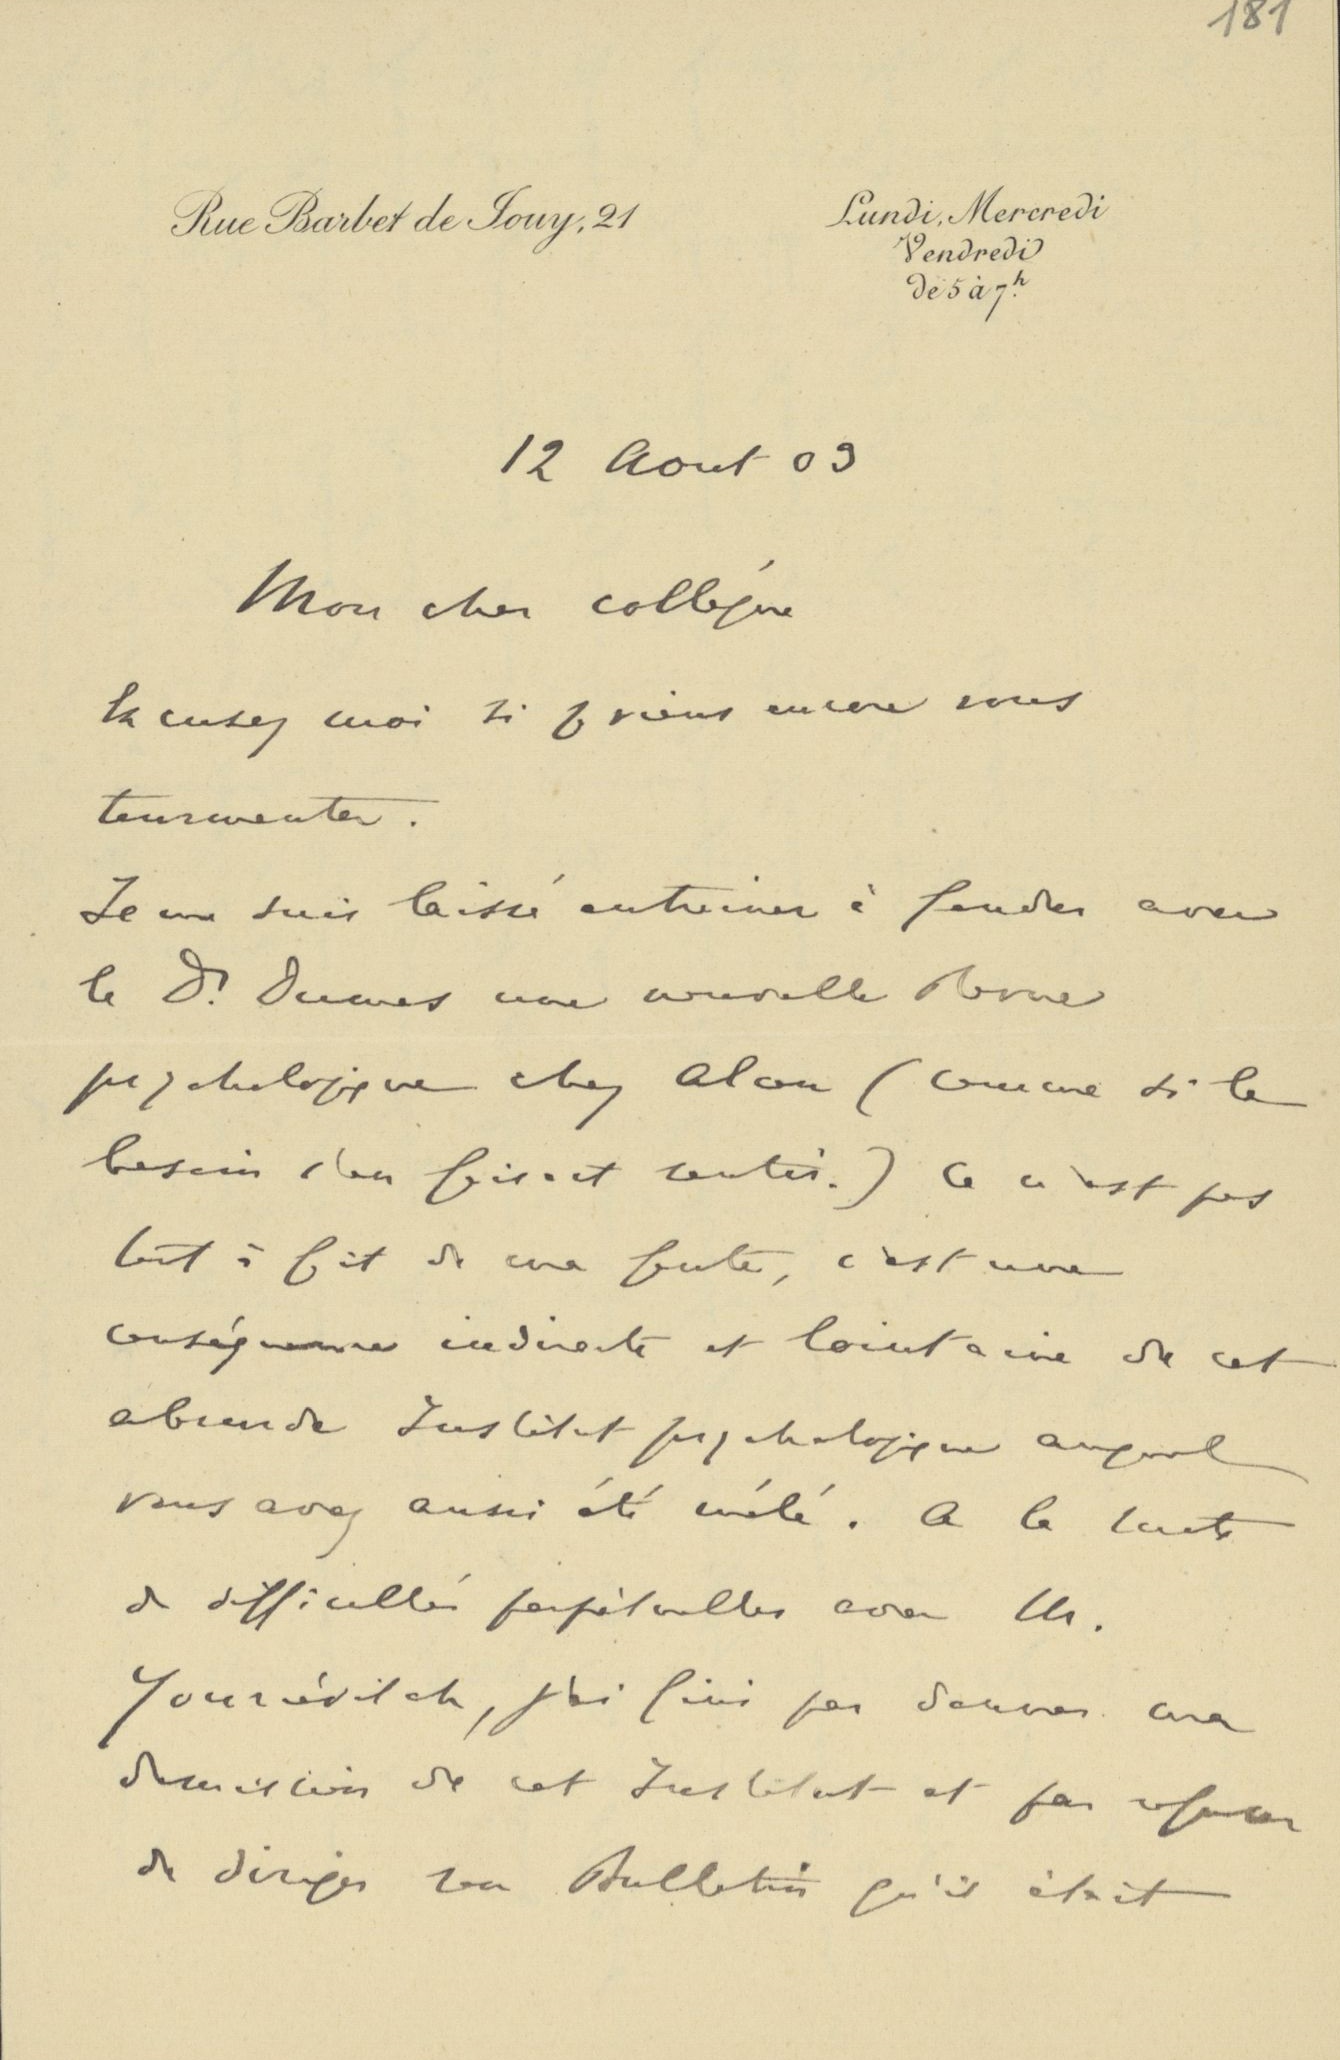 181
Rue Barbet de Jouy, 21
Lundi, Mercredi
Vendredi
de 5 à 7h.
12 Aout 03
Mon cher collégue
Excusez moi si je viens encore vous
tourmenter.
Je me suis laissé entrainer à fonder avec
le Dr. Dumas une nouvelle Revue
psychologique chez Alcan (comme si le
besoin s'en faisait sentir.) Ce n'est pas
tout à fait de ma faute, c'est une
conséquence indirecte et lointaine de cet
absurde Institut psychologique auquel
vous avez aussi été mêlé. A la suite
de difficultés perpétuelles avec M.
Youriévitch, j'ai fini par donner ma
demission de cet Institut et par refuser
de diriger son Bulletin qu'il était